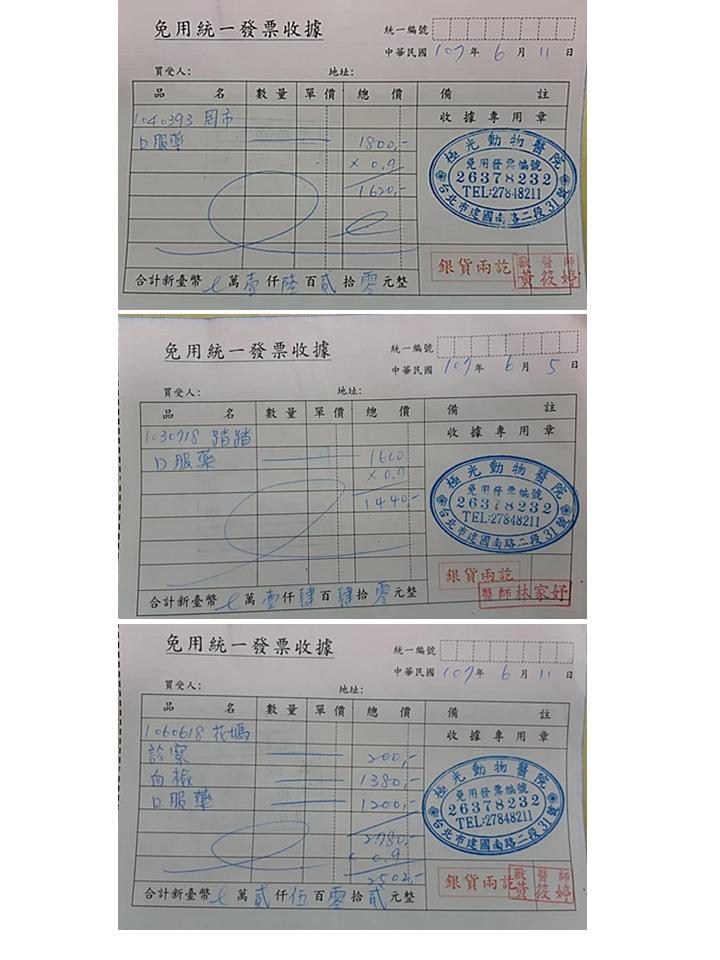 免用統一發票收據
統一編號
中華民國 107 年 6 月 11 日
買受人： 地址：
品 名 數 量 單 價 總 價 備 註
1040393 周市 收據專用章
口服藥 1800,-
x 0.9
1620,-
極光動物醫院
免用發票編號
26378232
TEL:27848211
台北市建國南路二段31號
銀貨兩訖 獸醫師 黃筱婷
合計新臺幣 萬壹仟陸百貳拾零元整
免用統一發票收據
統一編號
中華民國 107 年 6 月 5 日
買受人： 地址：
品 名 數 量 單 價 總 價 備 註
1030718 踏踏 收據專用章
口服藥 1600
x 0.9
1440,-
極光動物醫院
免用發票編號
26378232
TEL:27848211
台北市建國南路二段31號
銀貨兩訖
醫師林家妤
合計新臺幣 萬壹仟肆百肆拾零元整
免用統一發票收據
統一編號
中華民國 107 年 6 月 11 日
買受人： 地址：
品 名 數 量 單 價 總 價 備 註
1060618 花媽 收據專用章
診察 200,-
血檢 1380,-
口服藥 1200,-
2780,-
x 0.9
2502,-
極光動物醫院
免用發票編號
26378232
TEL:27848211
台北市建國南路二段31號
銀貨兩訖 獸醫師 黃筱婷
合計新臺幣 萬貳仟伍百零拾貳元整